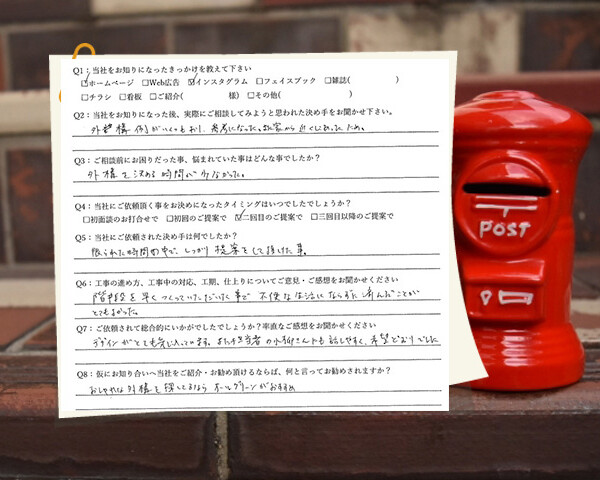 Q1：当社をお知りになったきっかけを教えて下さい
☑ホームページ □Web広告 ☑インスタグラム □フェイスブック □雑誌( )
□チラシ □看板 □ご紹介( 様) □その他( )
Q2：当社をお知りになった後、実際にご相談してみようと思われた決め手をお聞かせ下さい。
外構例がいくつもあり、参考になった。お家から近くにあったため。
Q3：ご相談前にお困りだった事、悩まれていた事はどんな事でしたか？
外構を決める時間が少なかった。
Q4：当社にご依頼頂く事をお決めになったタイミングはいつでしたでしょうか？
□初面談のお打合せで □初回のご提案で ☑二回目のご提案で □三回目以降のご提案で
Q5：当社にご依頼された決め手は何でしたか？
限られた時間の中で、しっかり提案をして頂けた事。
Q6：工事の進め方、工事中の対応、工期、仕上りについてご意見・ご感想をお聞かせください
階段を早くつくっていただいた事で不便な生活にならずに済んだことが
とてもよかった。
Q7：ご依頼されて総合的にいかがでしたでしょうか？率直なご感想をお聞かせください
デザインがとても気に入っています。また担当者の小柳さんも話しやすく、希望どおりでした
Q8：仮にお知り合いへ当社をご紹介・お勧め頂けるならば、何と言ってお勧めされますか？
おしゃれな外構を探してるなら ホールグリーンがおすすめ
POST